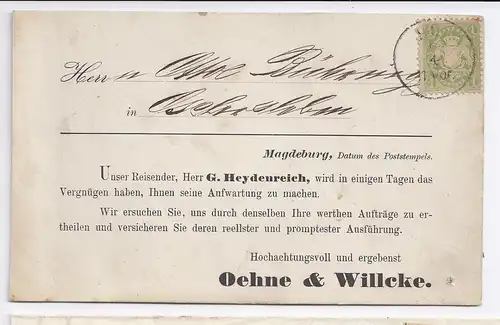 Herrn Otto Bühring
in Oschersleben
Magdeburg, Datum des Poststempels.
Unser Reisender, Herr G. Heydenreich, wird in einigen Tagen das
Vergnügen haben, Ihnen seine Aufwartung zu machen.
Wir ersuchen Sie, uns durch denselben Ihre werthen Aufträge zu er-
theilen und versicheren Sie deren reellster und promptester Ausführung.
Hochachtungsvoll und ergebenst
Oehne & Willcke.